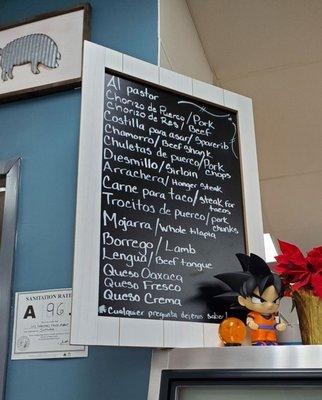 Al pastor
Chorizo de Puerco/Pork
Chorizo de Res/Beef
Costilla para asar/Sparerib
Chamorro/Beef Shank
Chuletas de puerco/Pork chops
Diesmillo/Sirloin
Arrachera/Hanger Steak
Carne para taco/steak for tacos
Trocitos de puerco/pork chunks
Mojarra/Whole tilapia
Borrego/Lamb
Lengua/Beef tongue
Queso Oaxaca
Queso Fresco
Queso Crema
Cualquier pregunta dejenos saber!
SANITATION RATING
A 96